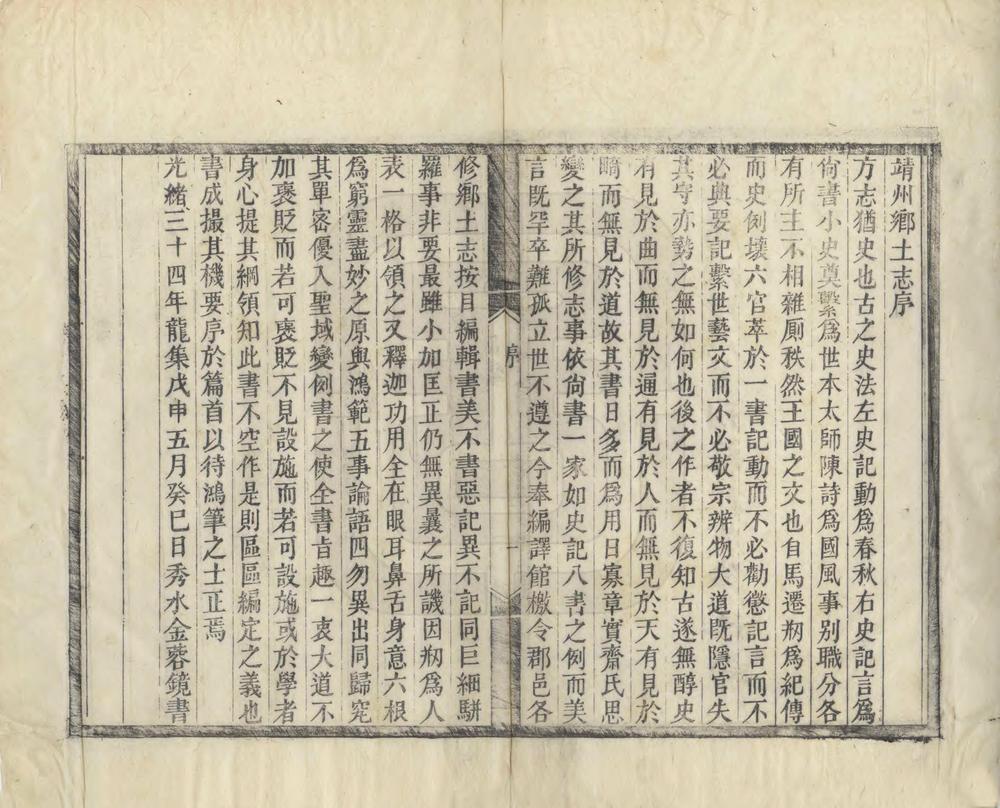 靖州鄉土志序
方志猶史也古之史法左史記動爲春秋右史記言爲
尙書小史奠繫爲世本太師陳詩爲國風事別職分各
有所主不相雜厠秩然王國之文也自馬遷刱爲紀傳
而史例壞六官萃於一書記動而不必勸懲記言而不
必典要記繫世藝文而不必敬宗辨物大道旣隱官失
其守亦勢之無如何也後之作者不復知古遂無醇史
有見於曲而無見於通有見於人而無見於天有見於
時而無見於道故其書日多而爲用日寡章實齋氏思
變之其所修志事依尙書一家如史記八書之例而美
言旣罕卒難孤立世不遵之今奉編譯館檄令郡邑各
序
一
修鄉土志按目編輯書美不書惡記異不記同巨細駢
羅事非要最雖小加匡正仍無異曩之所譏因刱爲人
表一格以領之又釋迦功用全在眼耳鼻舌身意六根
爲窮靈盡妙之原與鴻範五事論語四勿異出同歸究
其單密優入聖域變例書之使全書旨趣一衷大道不
加褒貶而若可褒貶不見設施而若可設施或於學者
身心提其綱領知此書不空作是則區區編定之義也
書成撮其機要序於篇首以待鴻筆之士正焉
光緒三十四年龍集戊申五月癸巳日秀水金蓉鏡書